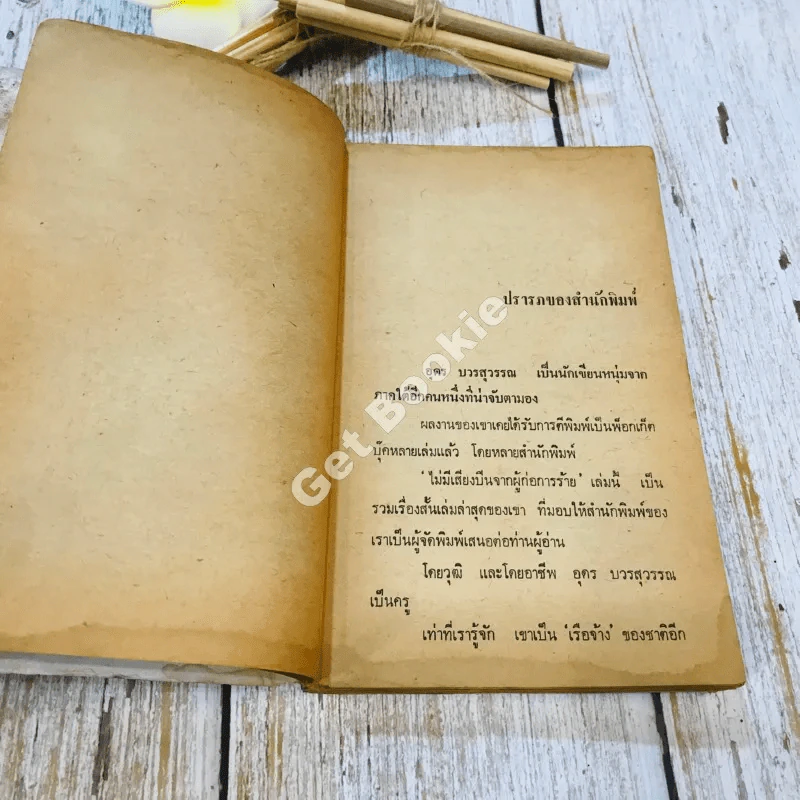 ปรารภของสำนักพิมพ์
อุดร บวรสุวรรณ เป็นนักเขียนหนุ่มจาก
ภาคใต้อีกคนหนึ่งที่น่าจับตามอง
ผลงานของเขาเคยได้รับการตีพิมพ์เป็นพ็อกเก็ต
บุ๊คหลายเล่มแล้ว โดยหลายสำนักพิมพ์
'ไม่มีเสียงปืนจากผู้ก่อการร้าย' เล่มนี้ เป็น
รวมเรื่องสั้นเล่มล่าสุดของเขา ที่มอบให้สำนักพิมพ์ของ
เราเป็นผู้จัดพิมพ์เสนอต่อท่านผู้อ่าน
โดยวุฒิ และโดยอาชีพ อุดร บวรสุวรรณ
เป็นครู
เท่าที่เรารู้จัก เขาเป็น 'เรือจ้าง' ของชาติอีก
Get Bookie